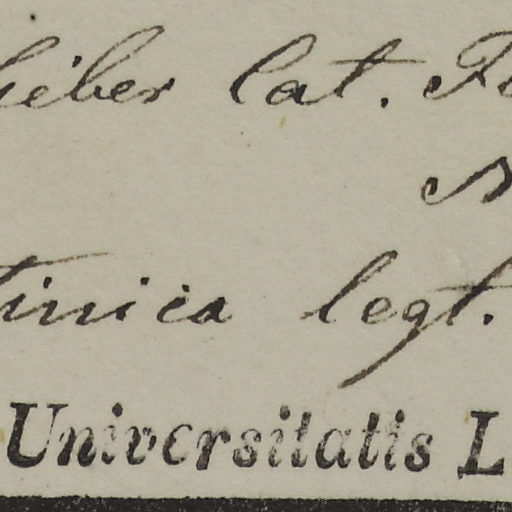 ieber Cat. Fe
tinica legt.
Universitatis L